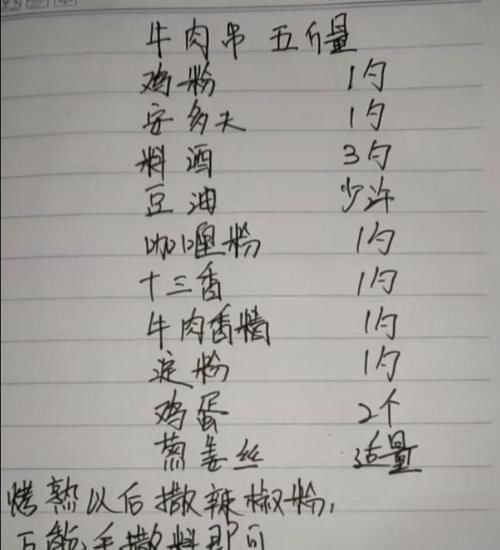 牛肉串 五斤量
鸡粉 1勺
安多夫 1勺
料酒 3勺
豆油 少许
咖喱粉 1勺
十三香 1勺
牛肉香精 1勺
淀粉 1勺
鸡蛋 2个
葱姜丝 适量
烤熟以后撒辣椒粉,
万能手撒料即可